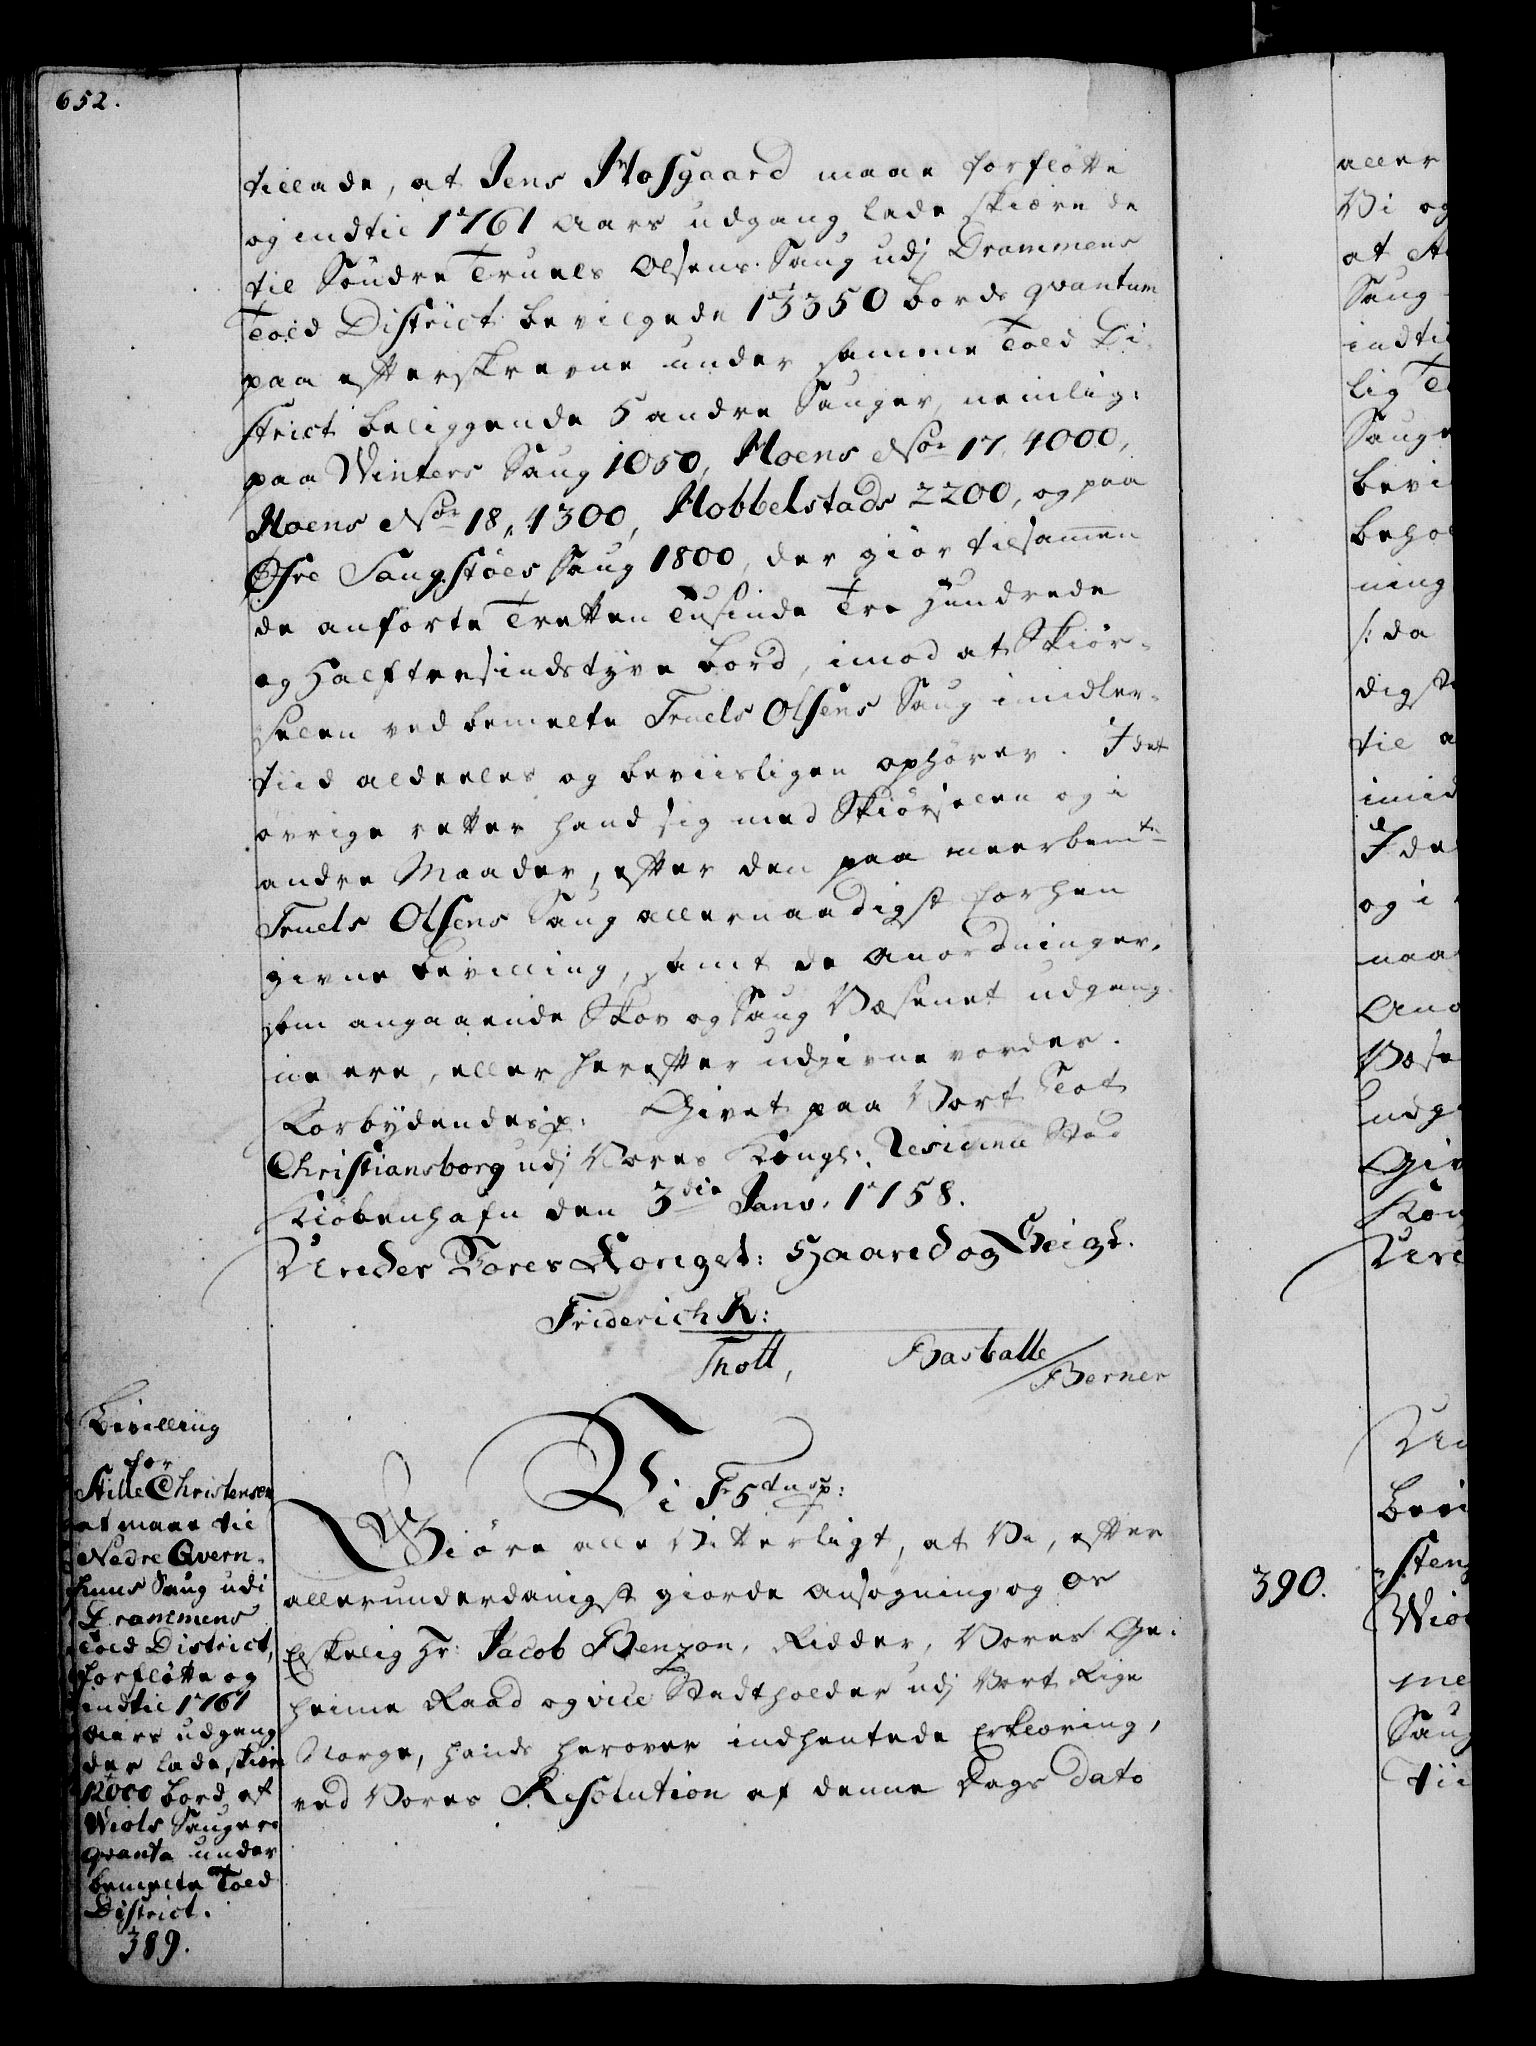 652.
tillade, at Jens Hofgaard maae forflötte
og indtil 1761 Aars udgang lade skiære de
til Söndre Truels Olsens Saug udj Drammens
Told District bevilgede 13350 bords qvantum
paa efterskrevne under samme Told Di-
strict beliggende 5 andre Sauger, nemlig:
paa Winters Saug 1050, Hoens No 17, 4000,
Hoens No 18, 4300, Hobbelstads 2200, og paa
Øfre Saugstöes Saug 1800, der giör tilsammen
de anförte Tretten Tusinde Tre Hundrede
og Halftresindstyve bord, imod at Skiör-
selen ved bemelte Truels Olsens Saug imidler-
tiid aldeeles og beviisligen ophörer. I det
övrige retter hand sig med Skiörselen og i
andre Maader, efter den paa meerbemte
Truels Olsens Saug allernaadigst forhen
givne bevilling, samt de Anordninger,
som angaaende Skov og Saug Væsenet udgang-
ne ere, eller herefter udgivne vorder.
Forbydendes p: Givet paa Vort Slot
Christiansborg udj Vores Kongl: Residence Stad
Kiöbenhafn den 3die Janv. 1758.
Under Vores Kongel: Haand og Seigl.
Friderich R:
Thott, Hasballe / Berner
Bevilling
for
Stille Christensen
at maae til
Nedre Qvern-
huus Saug udi
Drammens
Told District,
forflötte og
indtil 1761
Aars udgang
der lade skiære
12000 bord af
Wiols Saugers
qvanta under
bemelte Told
District.
389.
Vi F5tus p:
Giöre alle Vitterligt, at Vi, efter
allerunderdanigst giorde Ansögning og Os
Elskelig Hr: Jacob Benzon, Ridder, Vores Ge-
heime Raad og vice Stadtholder udj Vort Rige
Norge, hands herover indhentede Erklæring,
ved Vores Resolution af denne Dags Dato
aller
Vi og
at
Saug
indtil
lig
Sauge
bevi
behol
ning
/: da
digst
til a
imid
I de
og i
naa
Ano
Væse
udg
Giv
Kon
Und
390.
Bevi
sten
Wiol
me
Saug
Tii